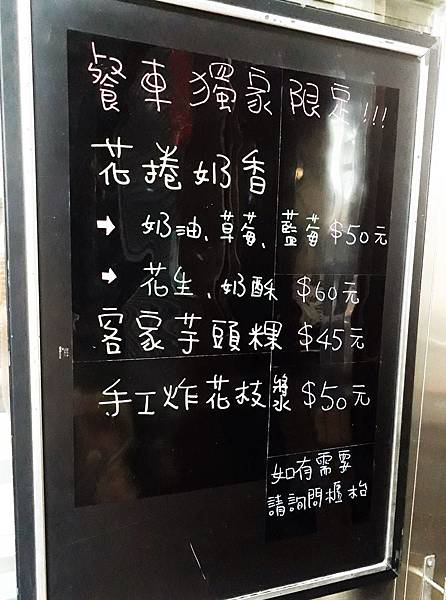 餐車獨家限定!!!
花捲奶香
➡ 奶油、草莓、藍莓 $50元
➡ 花生、奶酥 $60元
客家芋頭粿 $45元
手工炸花枝漿 $50元
如有需要
請詢問櫃枱